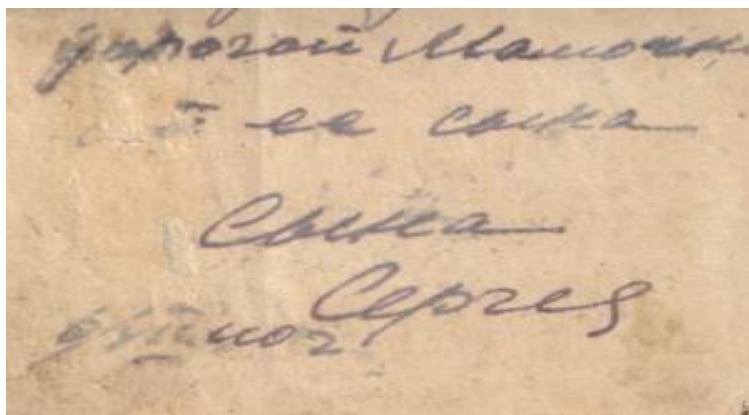 дорогой Мамочк
ее сынка
Сынка
Сергея